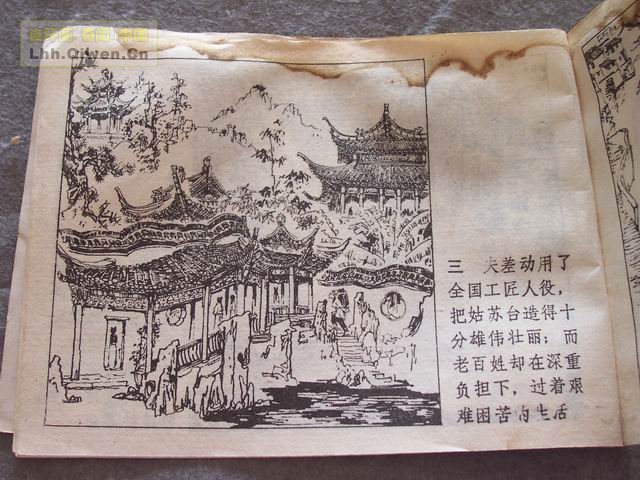 Lhh.Qiwen.Cn
三 夫差动用了
全国工匠人役，
把姑苏台造得十
分雄伟壮丽；而
老百姓却在深重
负担下，过着艰
难困苦的生活